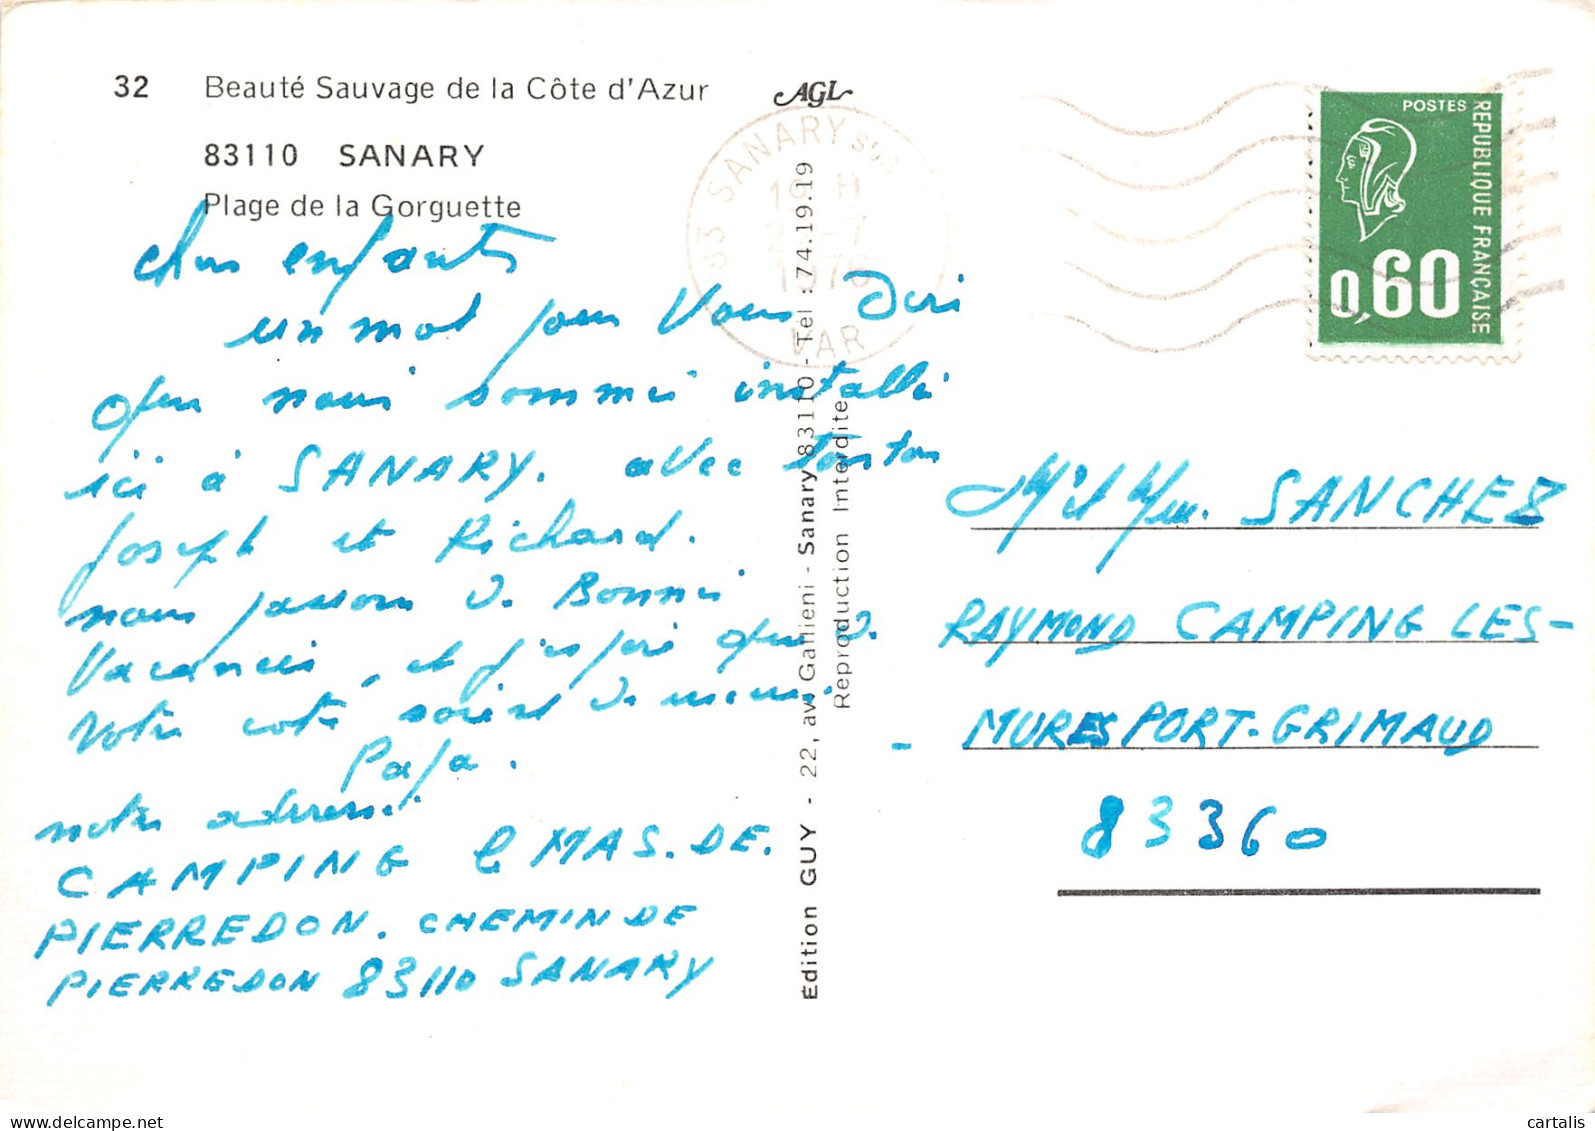 32 Beauté Sauvage de la Côte d'Azur
AGL
83110 SANARY
Plage de la Gorguette
chers enfants
un mot pour vous diri
que nous sommes installé
ici à SANARY. avec tonton
Joseph et Richard.
nous passons d. Bonnes
Vacances, et j'espère que d.
votre coté soient de meme.
Papa.
notre adresse
CAMPING le MAS. DE.
PIERREDON. CHEMIN DE
PIERREDON 83110 SANARY
Édition GUY - 22, av. Gallieni - Sanary 83110 - Tel : 74.19.19
Reproduction Interdite
83 SANARY S/
H
7
VAR
POSTES
REPUBLIQUE FRANÇAISE
0,60
Mr et Mme. SANCHEZ
RAYMOND CAMPING LES-
- MURES PORT-GRIMAUD
83360
delcampe.net
cartalis